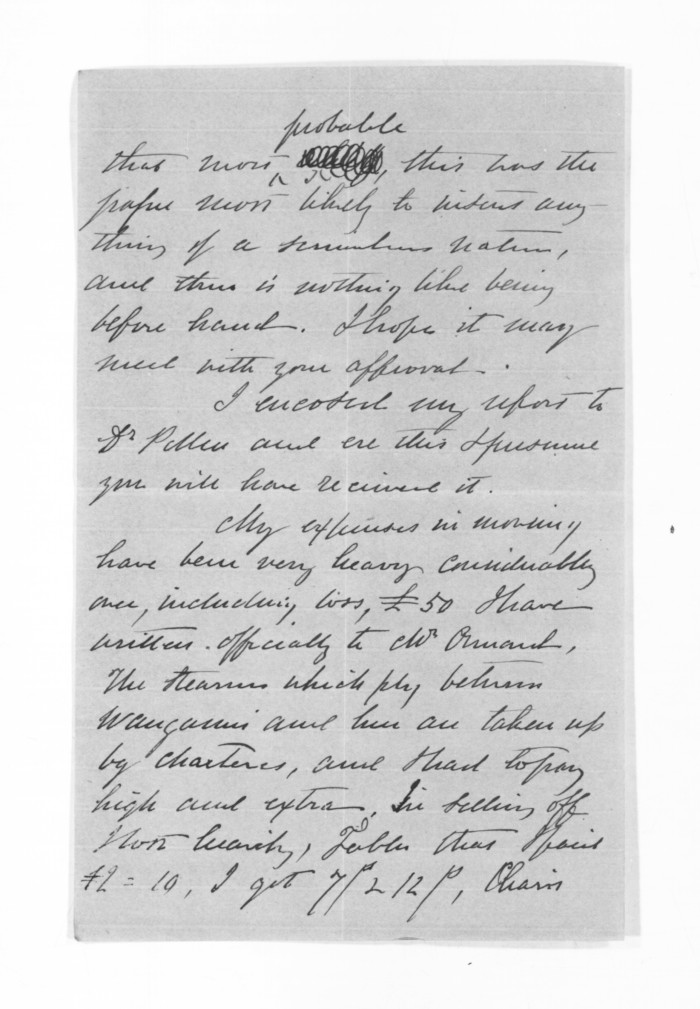 probable
that most, this was the
paper most likely to insert any
thing of a scurrilous nature,
and there is nothing like being
before hand. I hope it may
meet with your approval.
I encosed my report to
Dr Pollen and ere this I presume
you will have received it.
My expenses in moving
have been very heavy considerably
over, including loss, £50 I have
written officially to Mr Ormond,
The steamers which ply between
Wanganui and here are taken up
by charterers, and I had to pay
high and extra. In selling off
I lost heavily, Tables that I paid
£2 = 10, I got 7/ & 12/, Chairs